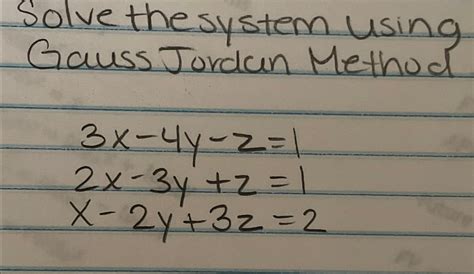 Solve the system using
Gauss Jordan Method
3x-4y-z=1
2x-3y+z=1
x-2y+3z=2